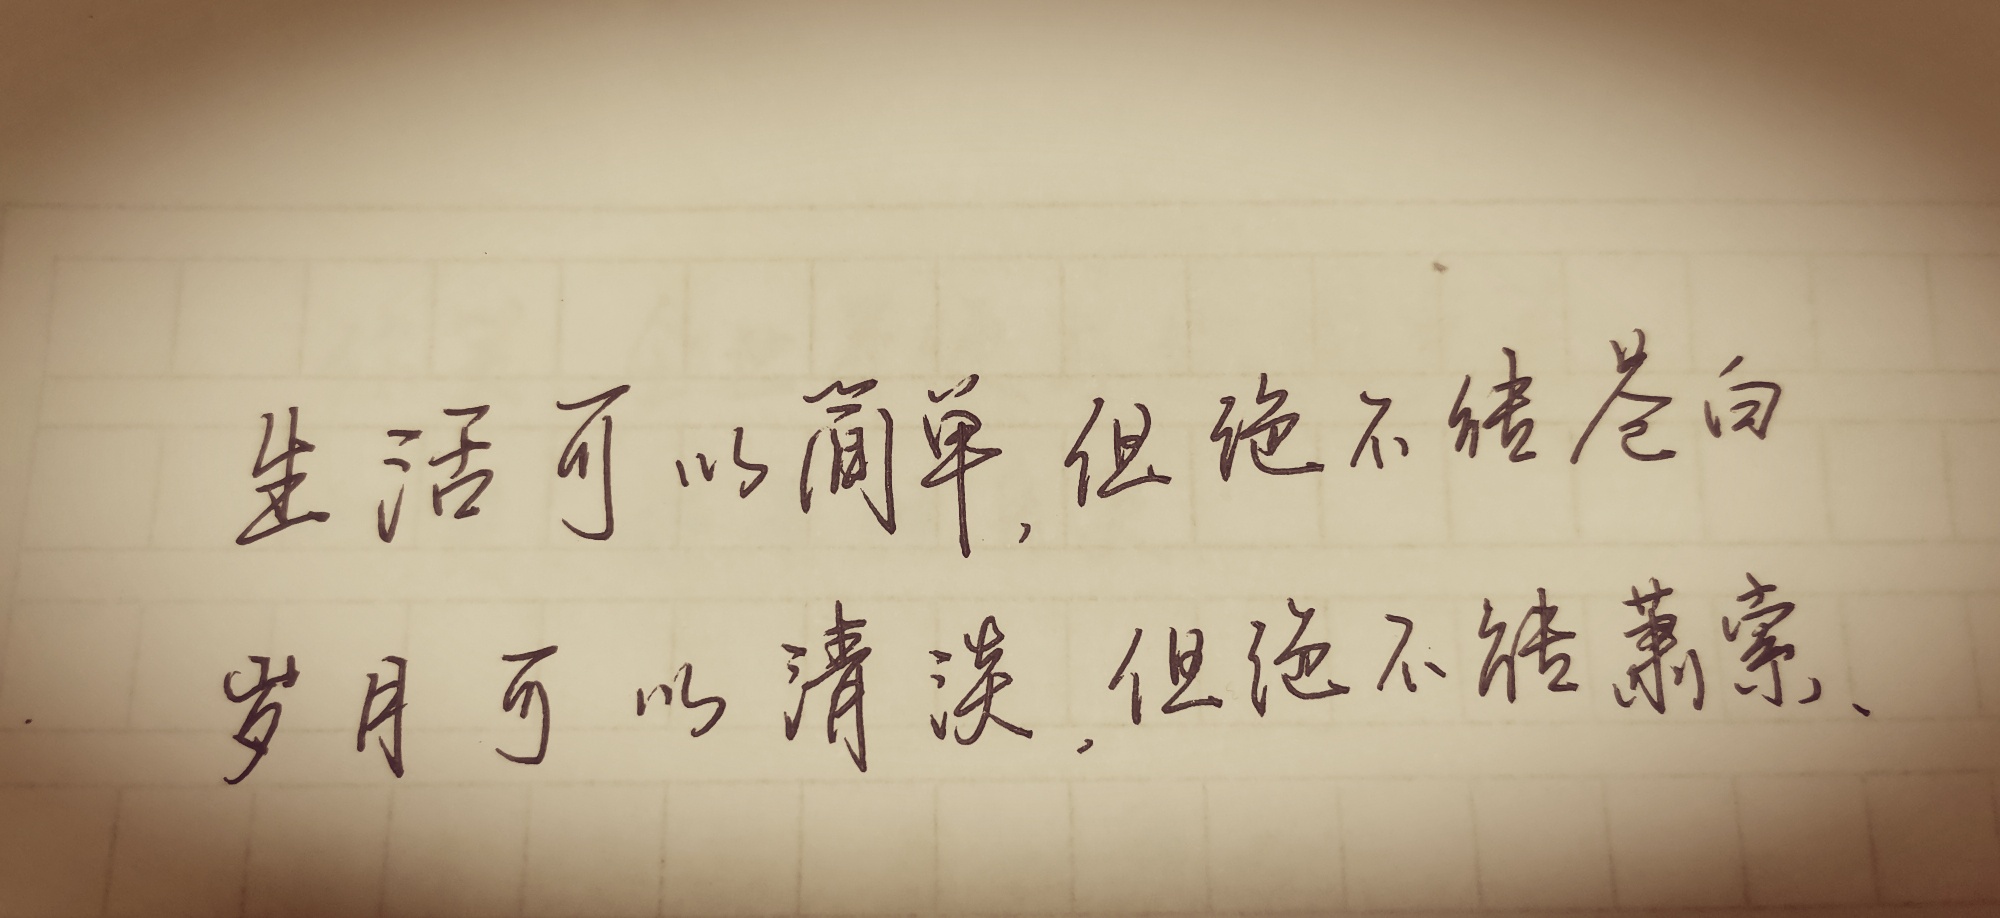 生活可以简单,但绝不能苍白
岁月可以清淡,但绝不能萧索、